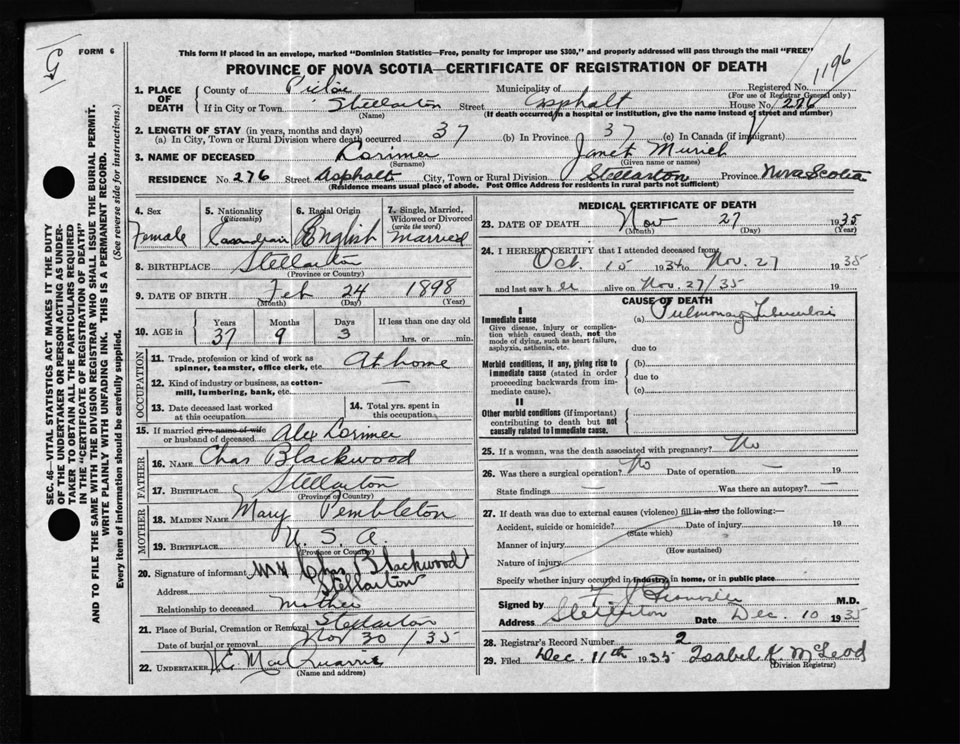 G
FORM 6
1196
This form if placed in an envelope, marked "Dominion Statistics—Free, penalty for improper use $300," and properly addressed will pass through the mail "FREE"
PROVINCE OF NOVA SCOTIA—CERTIFICATE OF REGISTRATION OF DEATH
1. PLACE OF DEATH County of Pictou Municipality of Registered No. (For use of Registrar General only)
If in City or Town Stellarton (Name) Street Asphalt House No. 276
(If death occurred in a hospital or institution, give the name instead of street and number)
2. LENGTH OF STAY (in years, months and days)
(a) In City, Town or Rural Division where death occurred 37 (b) In Province 37 (c) In Canada (if immigrant)
3. NAME OF DECEASED Lorimer (Surname) Janet Muriel (Given name or names)
RESIDENCE No. 276 Street Asphalt City, Town or Rural Division Stellarton Province Nova Scotia
(Residence means usual place of abode. Post Office Address for residents in rural parts not sufficient)
SEC. 46—VITAL STATISTICS ACT MAKES IT THE DUTY
OF THE UNDERTAKER OR PERSON ACTING AS UNDER-
TAKER TO OBTAIN ALL THE PARTICULARS REQUIRED
IN THE "CERTIFICATE OF REGISTRATION OF DEATH"
AND TO FILE THE SAME WITH THE DIVISION REGISTRAR WHO SHALL ISSUE THE BURIAL PERMIT.
WRITE PLAINLY WITH UNFADING INK. THIS IS A PERMANENT RECORD.
Every item of information should be carefully supplied. (See reverse side for instructions.)
4. Sex Female
5. Nationality (Citizenship) Canadian
6. Racial Origin English
7. Single, Married, Widowed or Divorced (write the word) Married
8. BIRTHPLACE Stellarton
(Province or Country)
9. DATE OF BIRTH Feb 24 1898
(Month) (Day) (Year)
10. AGE in Years Months Days If less than one day old
37 9 3 hrs. or min.
OCCUPATION
11. Trade, profession or kind of work as spinner, teamster, office clerk, etc. At home
12. Kind of industry or business, as cotton-mill, lumbering, bank, etc. —
13. Date deceased last worked at this occupation
14. Total yrs. spent in this occupation
15. If married give name of wife or husband of deceased Alex Lorimer
FATHER
16. NAME Chas Blackwood
17. BIRTHPLACE Stellarton
(Province or Country)
MOTHER
18. MAIDEN NAME Mary Pembleton
19. BIRTHPLACE U. S. A.
(Province or Country)
20. Signature of informant Mrs Chas Blackwood
Address Stellarton
Relationship to deceased Mother
21. Place of Burial, Cremation or Removal Stellarton
Date of burial or removal Nov 30 / 35
22. UNDERTAKER MacQuarrie
(Name and address)
MEDICAL CERTIFICATE OF DEATH
23. DATE OF DEATH Nov 27 1935
(Month) (Day) (Year)
24. I HEREBY CERTIFY that I attended deceased from
Oct. 15 1934 to Nov. 27 1935
and last saw her alive on Nov. 27/35 19
CAUSE OF DEATH
I
Immediate cause
Give disease, injury or complication which caused death, not the mode of dying, such as heart failure, asphyxia, asthenia, etc.
(a) Pulmonary Tuberculosis
due to
Morbid conditions, if any, giving rise to immediate cause (stated in order proceeding backwards from immediate cause).
(b)
due to
(c)
II
Other morbid conditions (if important) contributing to death but not causally related to immediate cause.
25. If a woman, was the death associated with pregnancy? No
26. Was there a surgical operation? No Date of operation — 19
State findings — Was there an autopsy? —
27. If death was due to external causes (violence) fill in also the following:—
Accident, suicide or homicide? Date of injury 19
(State which)
Manner of injury
(How sustained)
Nature of injury
Specify whether injury occurred in industry, in home, or in public place
Signed by M.D.
Address Stellarton Date Dec. 10 1935
28. Registrar's Record Number 2
29. Filed Dec. 11th 1935 Isabel K. McLeod
(Division Registrar)